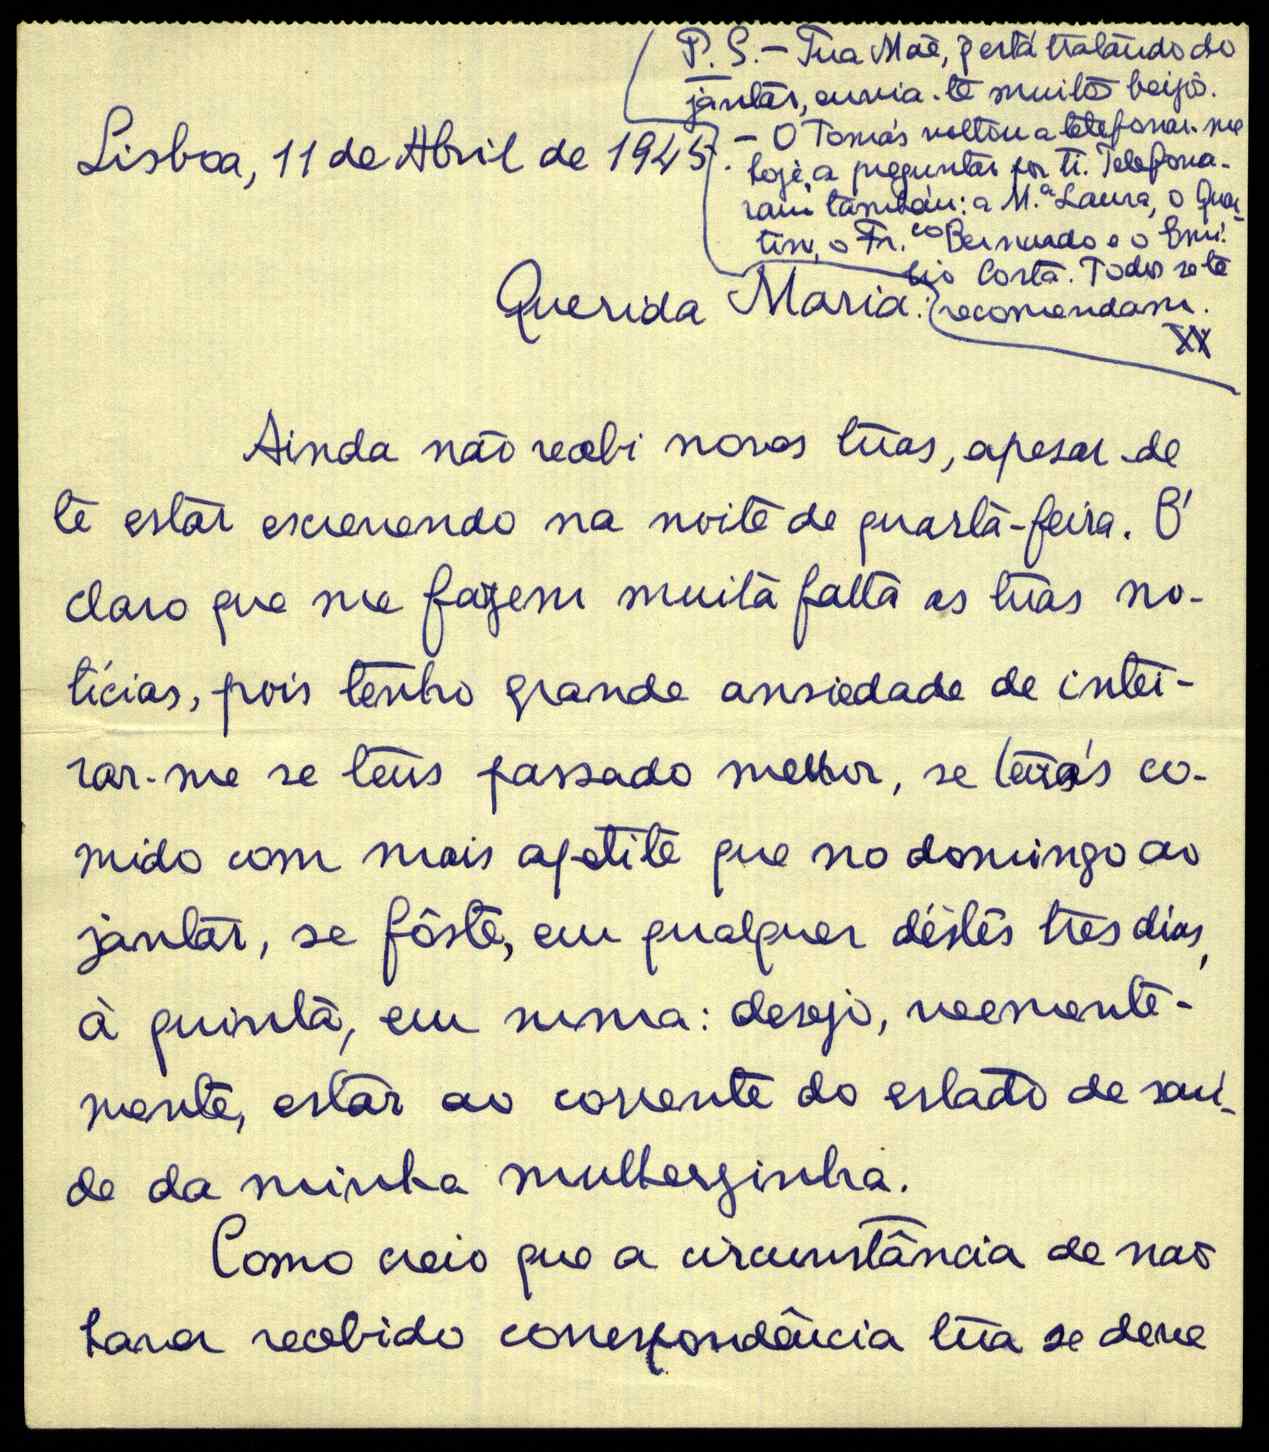 P. S. — Tua Mãe, q está tratando do
jantar, envia-te muitos beijos.
— O Tomás voltou a telefonar-me
hoje, a preguntar por ti. Telefona-
ram também: a M.ª Laura, o Quar-
tin, o Fr.co Bernardo e o Emí-
lio Costa. Todos se te
recomendam.
XX
Lisboa, 11 de Abril de 1945.
Querida Maria:
Ainda não recebi novas tuas, apesar de
te estar escrevendo na noite de quarta-feira. É
claro que me fazem muita falta as tuas no-
tícias, pois tenho grande ansiedade de intei-
rar-me se tens passado melhor, se terás co-
mido com mais apetite que no domingo ao
jantar, se fôste, em qualquer dêstes tres dias,
à quinta, em suma: desejo, veemente-
mente, estar ao corrente do estado de saú-
de da minha mulherzinha.
Como creio que a circunstância de não
haver recebido correspondência tua se deve